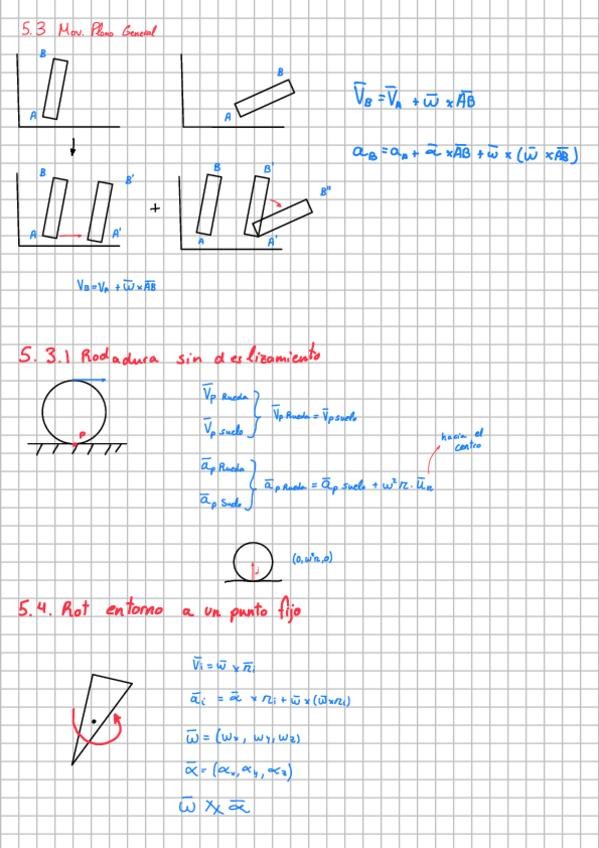 5.3 Mov. Plano General
B
A
B
A
V̄B = V̄A + ω̄ × AB̄
aB = aA + ᾱ × AB̄ + ω̄ × (ω̄ × AB̄)
B
B'
A
A'
+
B
B'
B"
A
A'
VB = VA + ω̄ × AB̄
5.3.1 Rodadura sin deslizamiento
P
V̄P Rueda
V̄P suelo
V̄P Rueda = V̄P suelo
āP Rueda
āP Suelo
āP Rueda = āP suelo + ω²r · ūn
hacia el
centro
(0, ω²r, 0)
5.4. Rot entorno a un punto fijo
V̄i = ω̄ × r̄i
āi = ᾱ × ri + ω̄ × (ω̄ × ri)
ω̄ = (ωx, ωy, ωz)
ᾱ = (αx, αy, αz)
ω̄ ∦ ᾱ